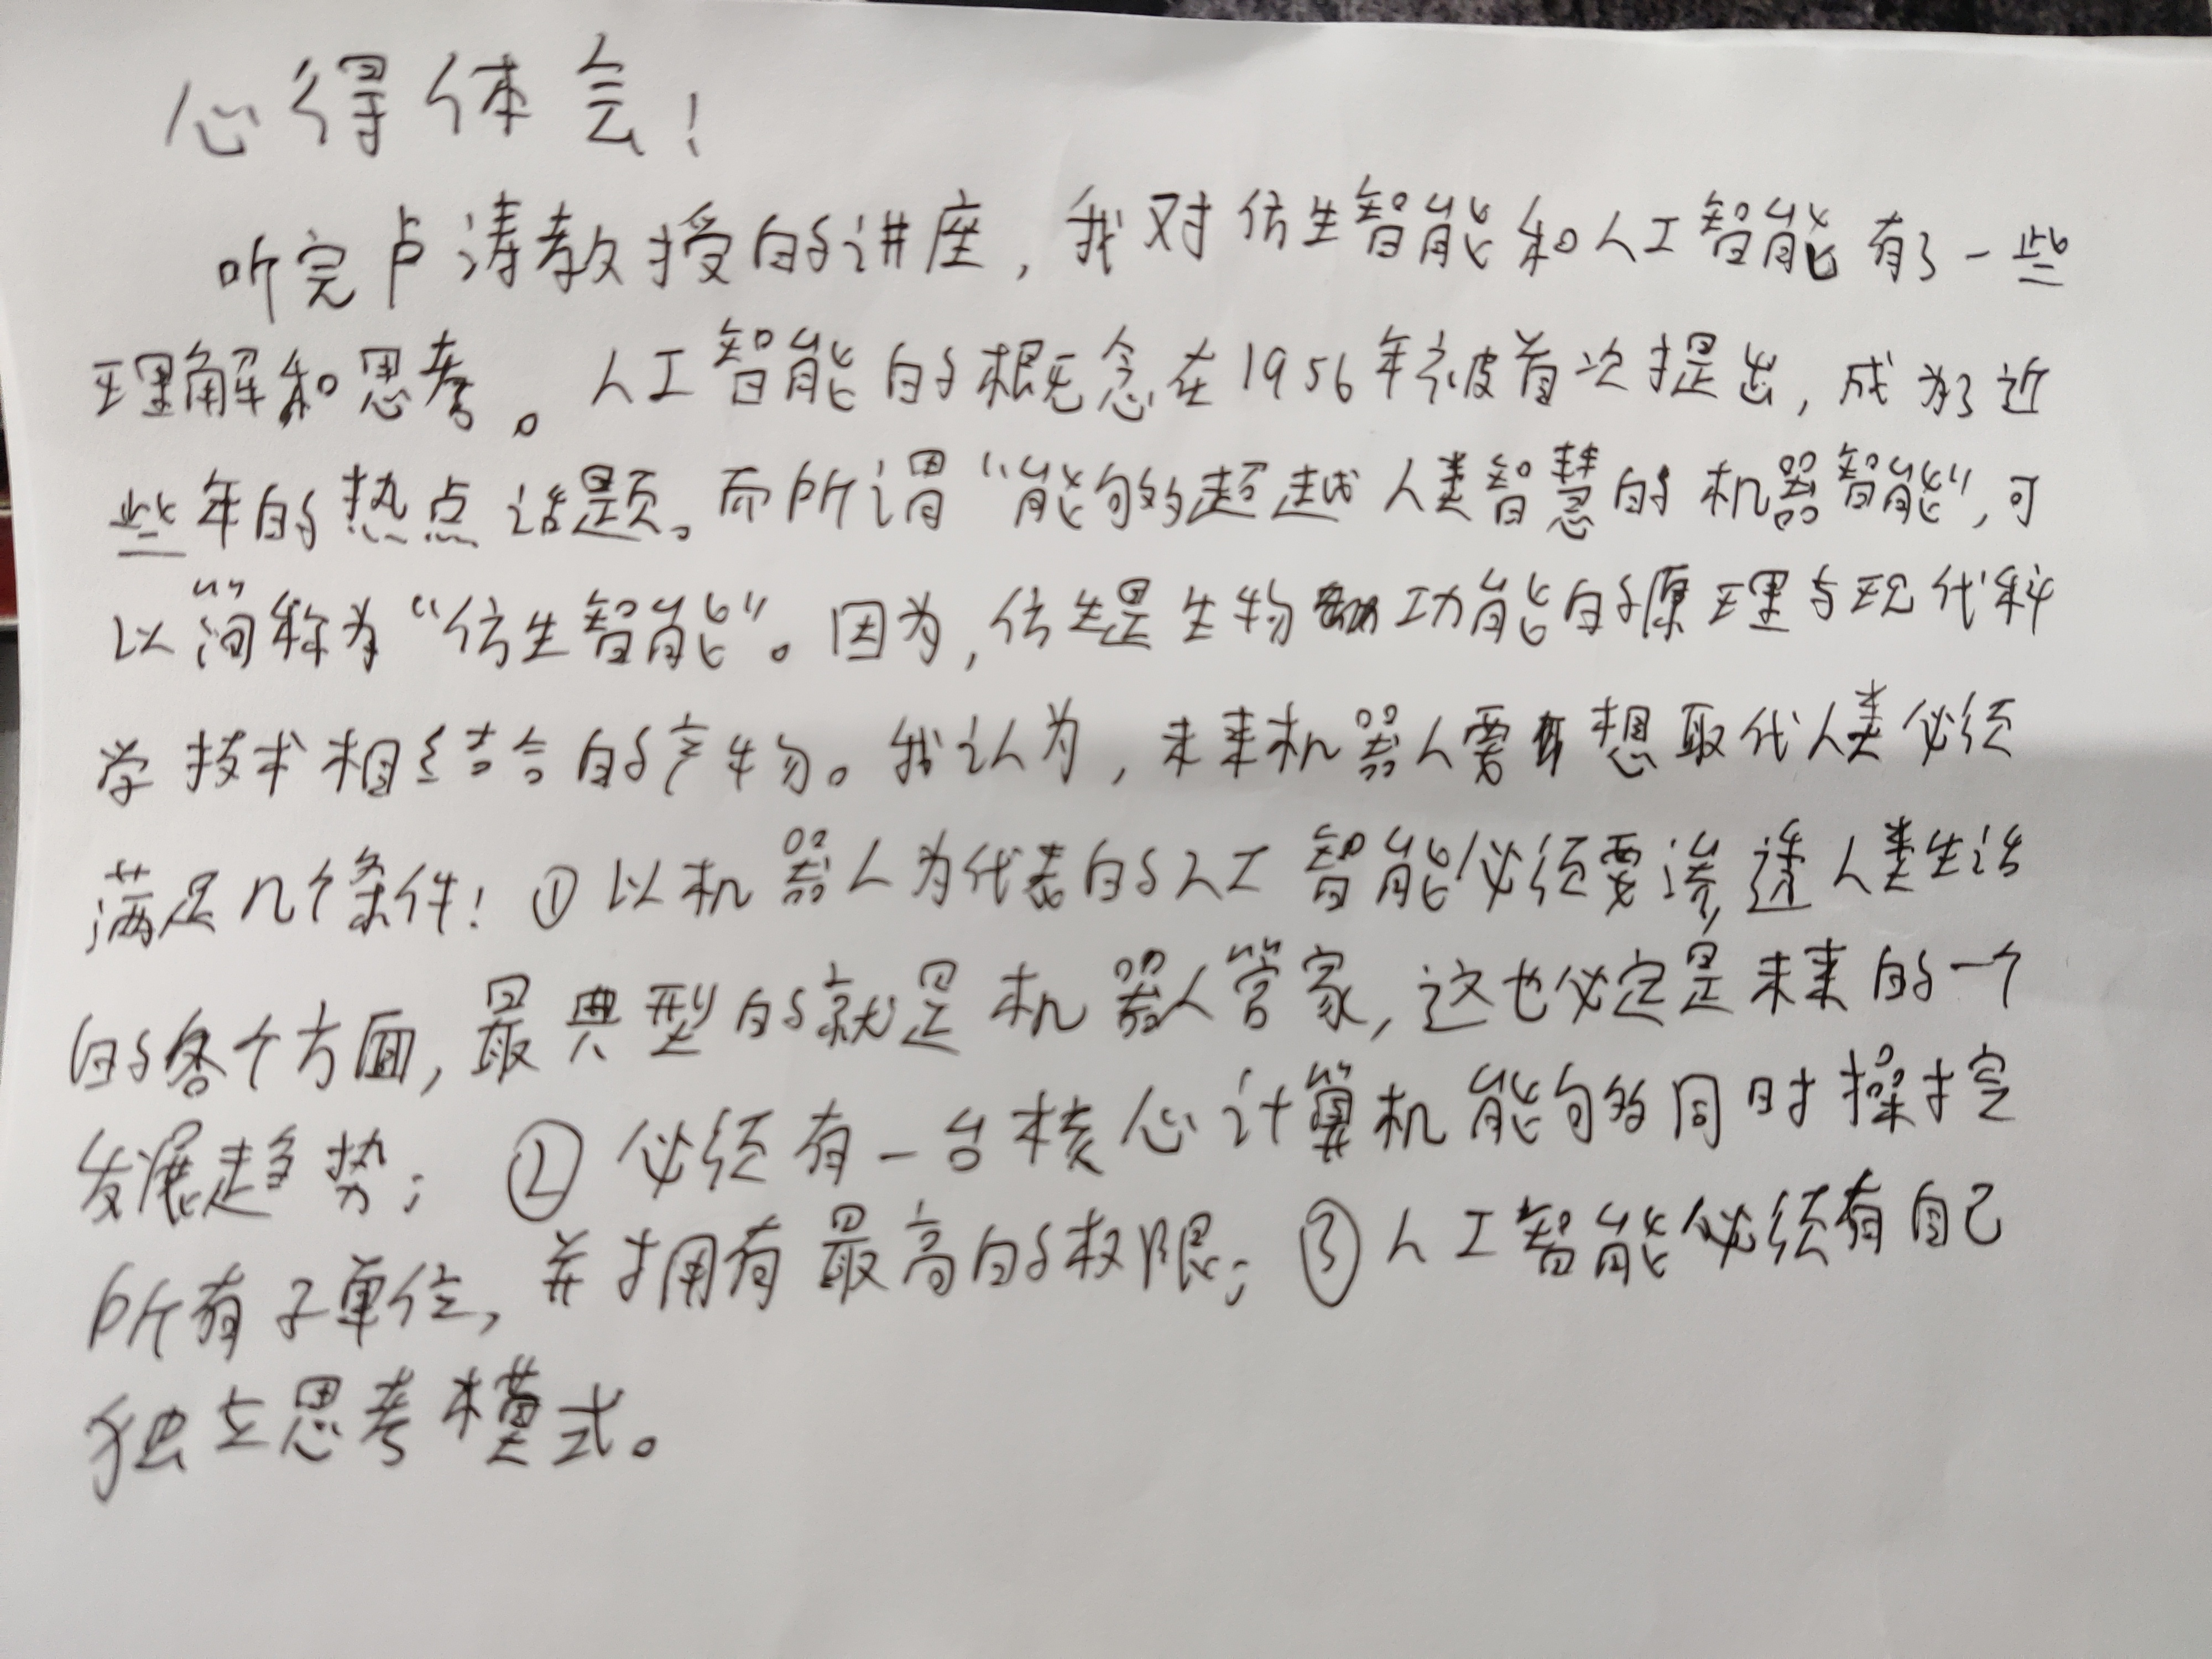 心得体会!
听完卢涛教授的讲座,我对仿生智能和人工智能有了一些
理解和思考。人工智能的概念在1956年被首次提出,成为了近
些年的热点话题。而所谓“能够超越人类智慧的机器智能”,可
以简称为“仿生智能”。因为,仿生是生物功能的原理与现代科
学技术相结合的产物。我认为,未来机器人要想取代人类必须
满足几个条件:①以机器人为代表的人工智能必须要渗透人类生活
的各个方面,最典型的就是机器人管家,这也必定是未来的一个
发展趋势;②必须有一台核心计算机能够同时操控
所有子单位,并拥有最高的权限;③人工智能必须有自己
独立思考模式。